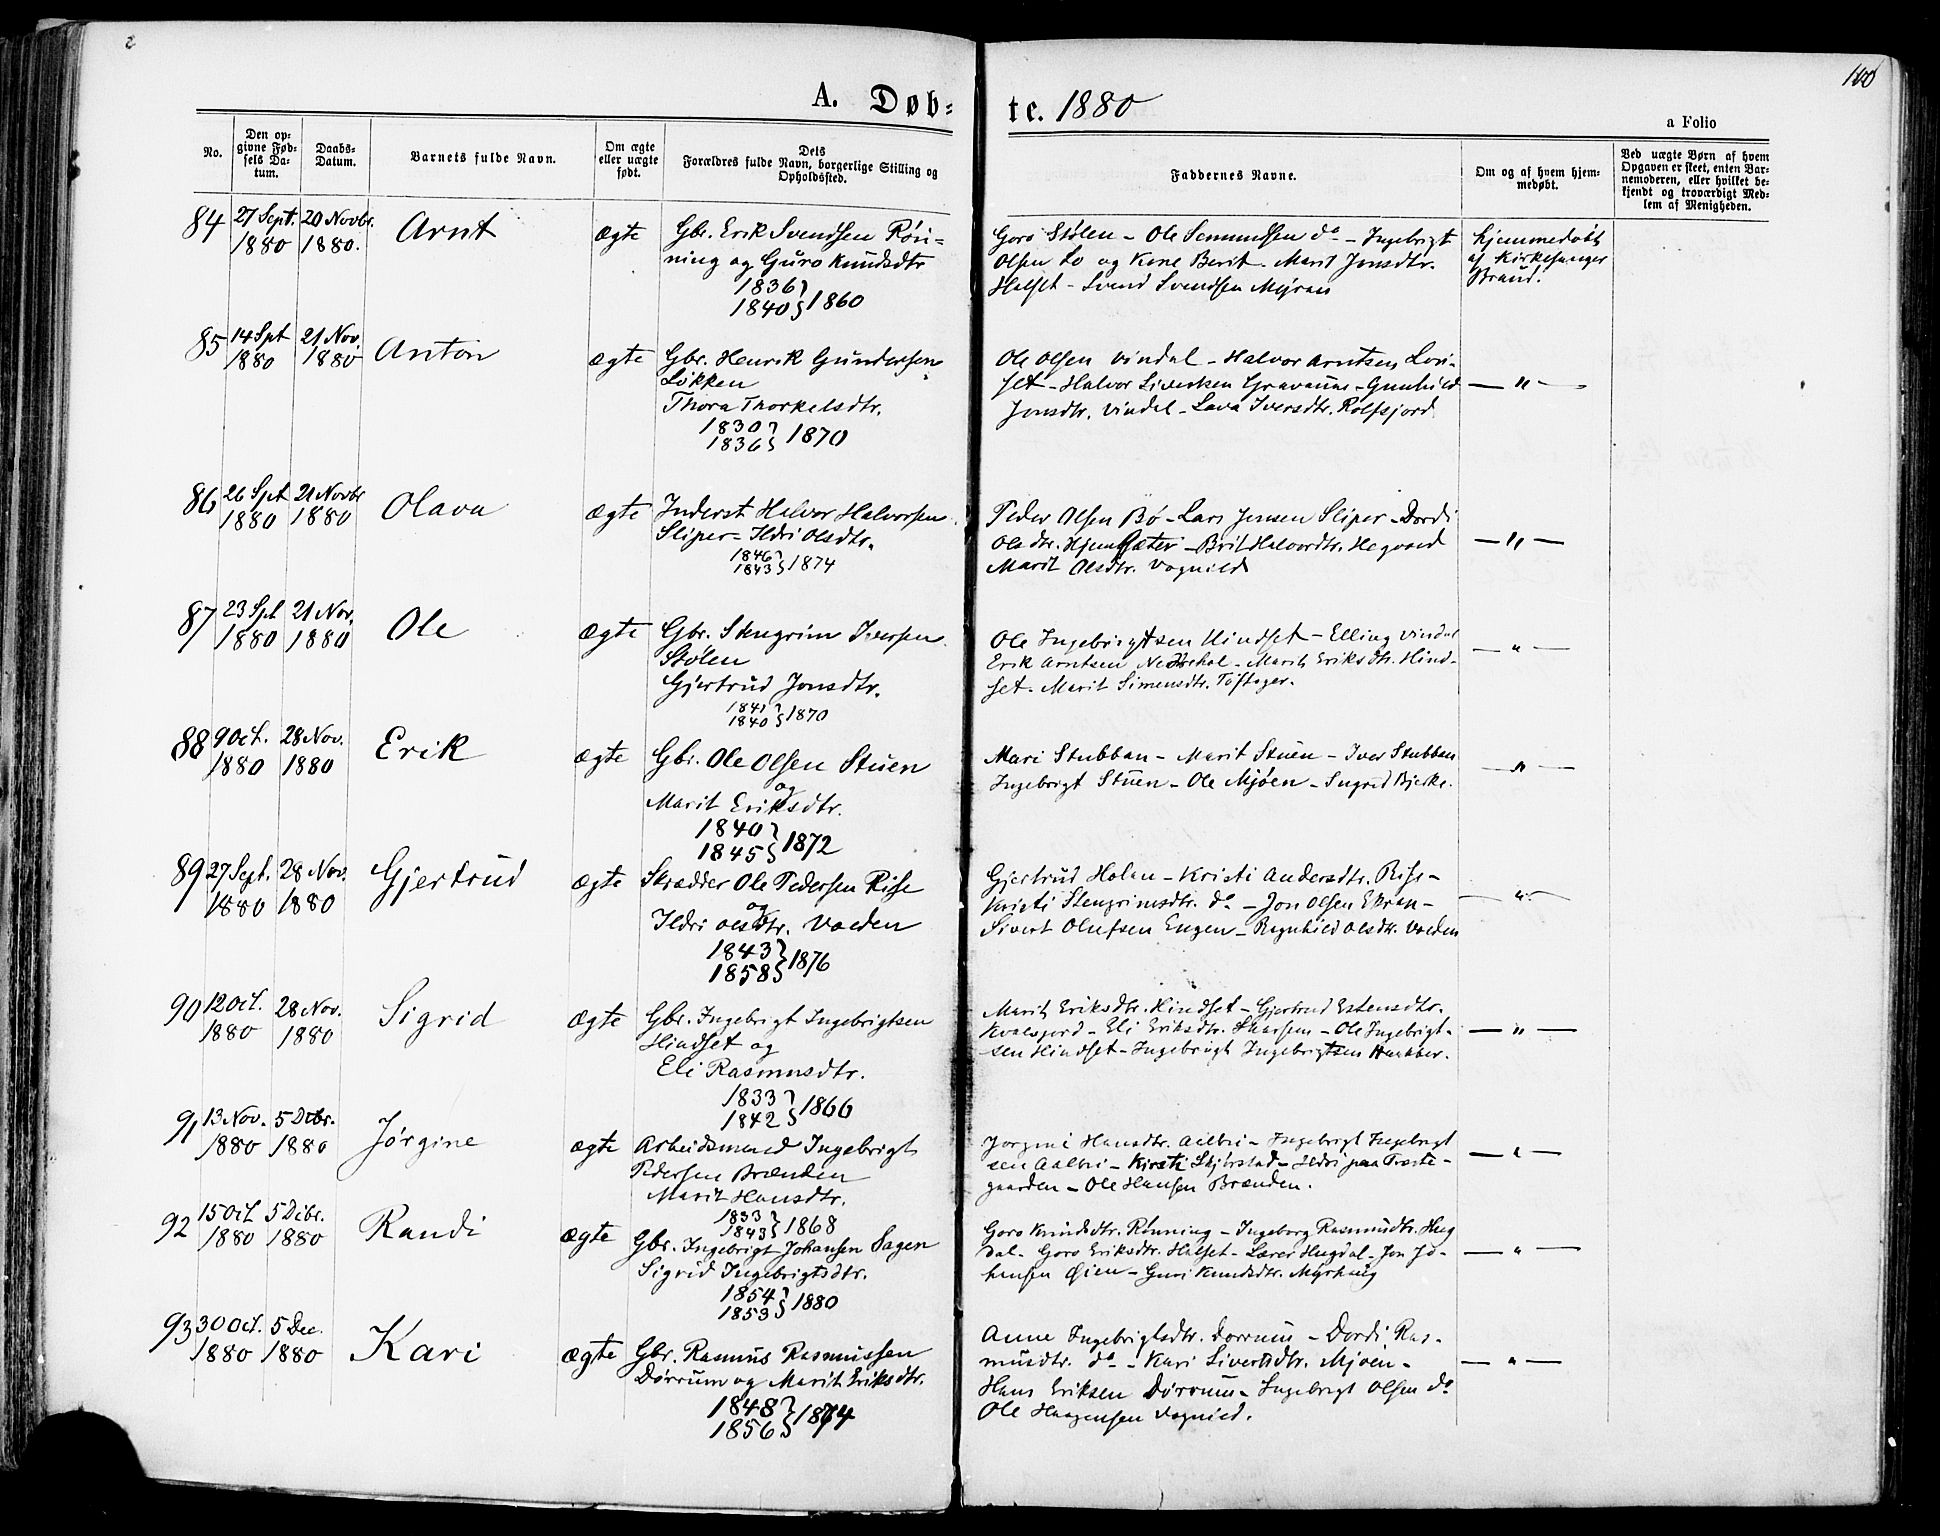 100
A. Døb= te. 1880
a Folio
No.
Den op-
givne Fød-
sels Da-
tum.
Daabs-
Datum.
Barnets fulde Navn.
Om ægte
eller uægte
født.
Dets
Forældres fulde Navn, borgerlige Stilling og
Opholdssted.
Faddernes Navne.
Om og af hvem hjem-
medøbt.
Ved uægte Børn af hvem
Opgaven er skeet, enten Bar-
nemoderen, eller hvilket be-
kjendt og troværdigt Med-
lem af Menigheden.
84 27 Sept. 1880 20 Novbr. 1880. Arnt ægte
Gbr. Erik Svendsen Røn-
ning og Guro Knudsdtr
1836
1840 } 1860
Goro Stølen - Ole do - Ingebrigt
Olsen Lo og Kone Berit - Marit Jonsdtr.
Halset - Svend Svendsen Myran
hjemmedøbt
af Kirkesanger
Braud.
85 14 Spt 1880 21 Nov. 1880 Anton ægte
Gbr. Henrik Gundersen
Løkken
Thora Thorkelsdtr.
1830
1836 } 1870
Ole Olsen Vindal - Halvor Arntsen
set - Halvor Sivertsen - Gunhild
Jonsdtr. Vindal - Lava Iversdtr.
— " —
86 26 Spt 1880 21 Novbr 1880 Olava ægte
Inderst Halvor Halvorsen
Sliper - Ildri Olsdtr.
1846
1843 } 1874
Peder Olsen Bø - Lars Jensen Sliper - Dordi
Olsdtr. - Brit Halvordtr.
Marit Olsdtr. Vognild
— " —
87 23 Spt 1880 21 Nov. 1880 Ole ægte
Gbr. Stengrim Iversen
Stølen
Gjertrud Jonsdtr.
1841
1840 } 1870
Ole Ingebrigtsen Hindset - Elling Vindal
Erik Arntsen - Marit Eriksdtr. Hind-
set - Marit Simensdtr. Toftager.
— " —
88 9 Oct. 1880 28 Nov. 1880 Erik ægte
Gbr. Ole Olsen Stuen
og
Marit Eriksdtr.
1840
1845 } 1872
Mari Stubban - Marit Stuen - Iver Stubban
Ingebrigt Stuen - Ole Mjøen - Bjerke.
— " —
89 27 Sept. 1880 28 Nov. 1880 Gjertrud ægte
Skrædder Ole Pedersen Rise
og
Ildri Olsdtr. Voeden
1843
1858 } 1876
Gjertrud Holen - Kristi Andersdtr. Rise -
Kristi Stengrimsdtr. do - Jon Olsen Ekran -
Sivert Olufsen Engen - Ragnhild Olsdtr. Voeden
— " —
90 12 Oct. 1880 28 Nov. 1880 Sigrid ægte
Gbr. Ingebrigt Ingebrigtsen
Hindset og
Eli Rasmusdtr.
1833
1842 } 1866
Marit Eriksdtr. Hindset - Gjertrud Estensdtr.
- Eli Eriksdtr. - Ole Ingebrigt-
sen Hindset - Ingebrigt Ingebrigtsen
— " —
91 13 Nov. 1880 5 Dcbr. 1880 Jørgine ægte
Arbeidsmand Ingebrigt
Pedersen Brænden
Marit Hansdtr.
1833
1843 } 1868
Jorgine Hansdtr. Aalbu - Ingebrigt Ingebrigt
sen Aalbu - Kirsti - Ildri paa Præste-
gaarden - Ole Hansen Brænden.
— " —
92 15 Oct 1880 5 Dcbr. 1880 Randi ægte
Gbr. Ingebrigt Johansen Sagen
Sigrid Ingebrigtsdtr.
1854
1853 } 1880
Goro Knudsdtr. Rønning - Ingeborg Rasmusdtr. Hug
dal - Goro Eriksdtr. Halset - Lærer Hugdal - Jon Jo-
hansen Øien - Guri Knudsdtr. Myrhaug
— " —
93 30 Oct. 1880 5 Dec. 1880 Kari ægte
Gbr. Rasmus Rasmussen
Dørrum og Marit Eriksdtr.
1848
1856 } 1874
Anne Ingebrigtsdtr. Dorrum - Dordi Ras-
musdtr. do - Kari Sivertsdtr. Mjøen -
Hans Eriksen Dørrum - Ingebrigt Olsen do
Ole Haagensen Vognild.
— " —